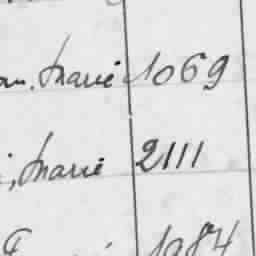 Marie 1069
Marie 2111
1984